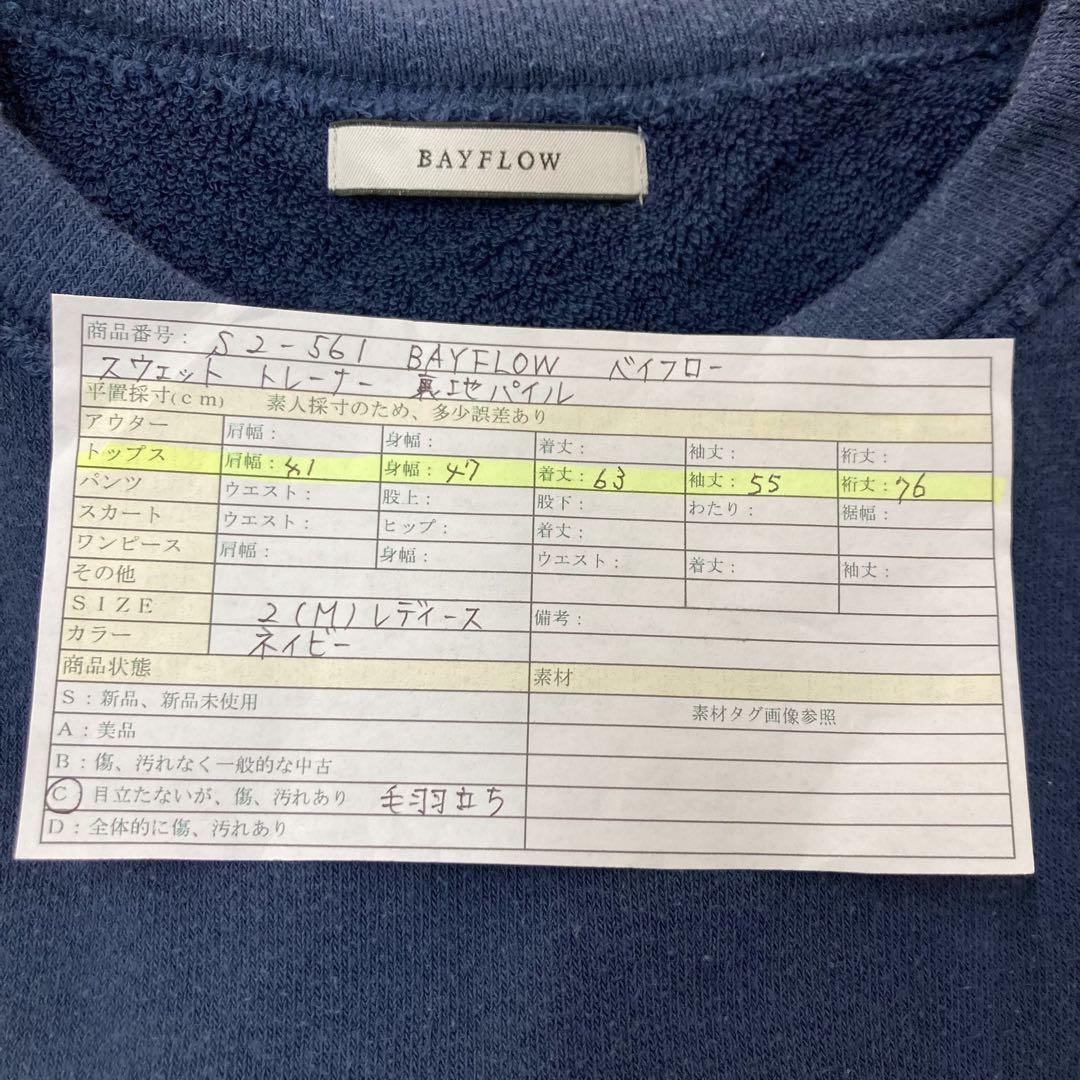 BAYFLOW
商品番号: S2-561 BAYFLOW ベイフロー
スウェット トレーナー 裏地パイル
平置採寸(cm) 素人採寸のため、多少誤差あり
アウター 肩幅: 身幅: 着丈: 袖丈: 裄丈:
トップス 肩幅:41 身幅:47 着丈:63 袖丈:55 裄丈:76
パンツ ウエスト: 股上: 股下: わたり: 裾幅:
スカート ウエスト: ヒップ: 着丈:
ワンピース 肩幅: 身幅: ウエスト: 着丈: 袖丈:
その他
SIZE 2(M)レディース 備考:
カラー ネイビー
商品状態 素材
S:新品、新品未使用 素材タグ画像参照
A:美品
B:傷、汚れなく一般的な中古
C 目立たないが、傷、汚れあり 毛羽立ち
D:全体的に傷、汚れあり